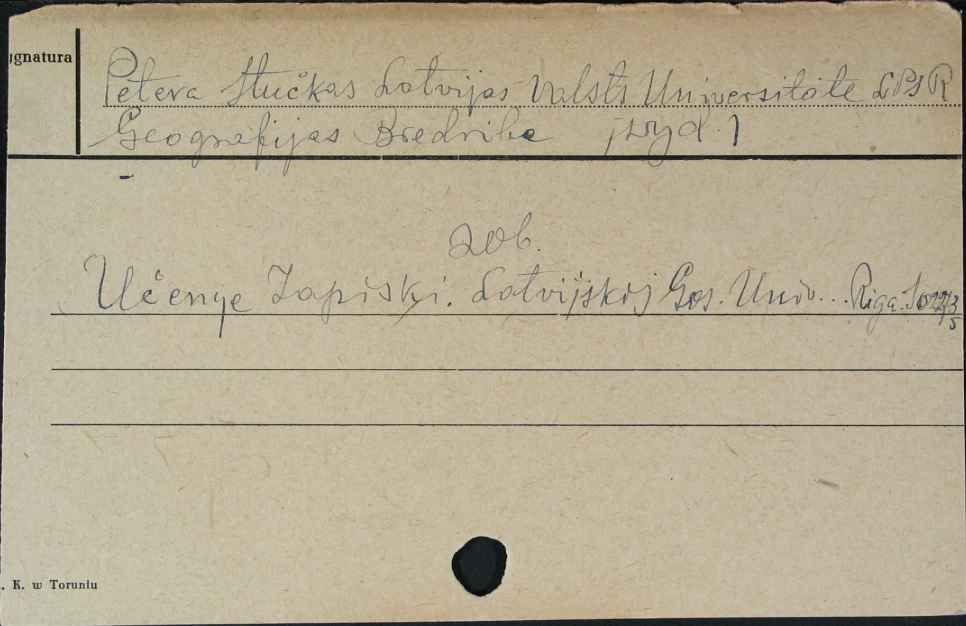 ygnatura
Petera Stučkas Latvijas Valsts Universitate LPSR
Geografijas Biedriba [wyd.]
zob.
Učenye Zapiski. Latvijskoj Gos. Univ... Riga.
. K. w Toruniu